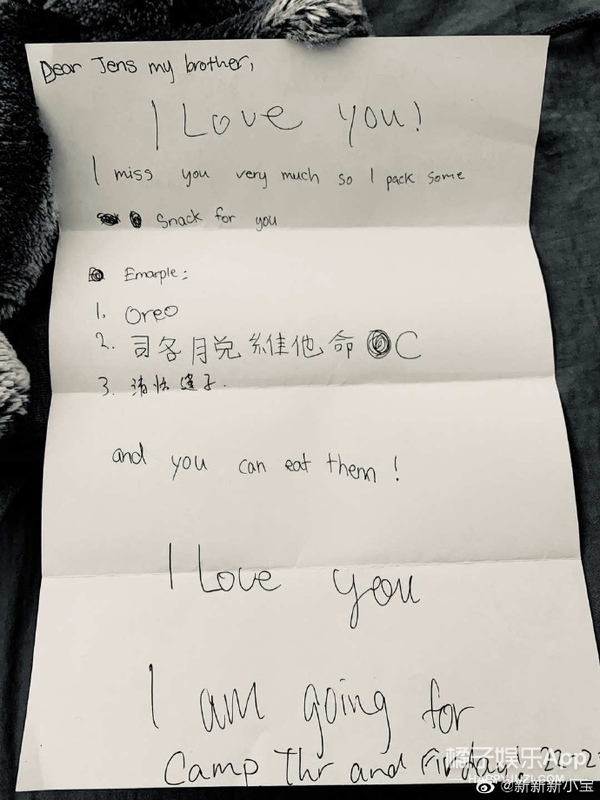 Dear Jens my brother,
I Love you!
I miss you very much so I pack some
Snack for you
Emarple:
1. Oreo
2. 司各脫維他命 C
3.
and you can eat them!
I Love you
I am going for
Camp Thr and 22-2
橘子娱乐App
HAPPYJUZI.COM
@新新新小宝